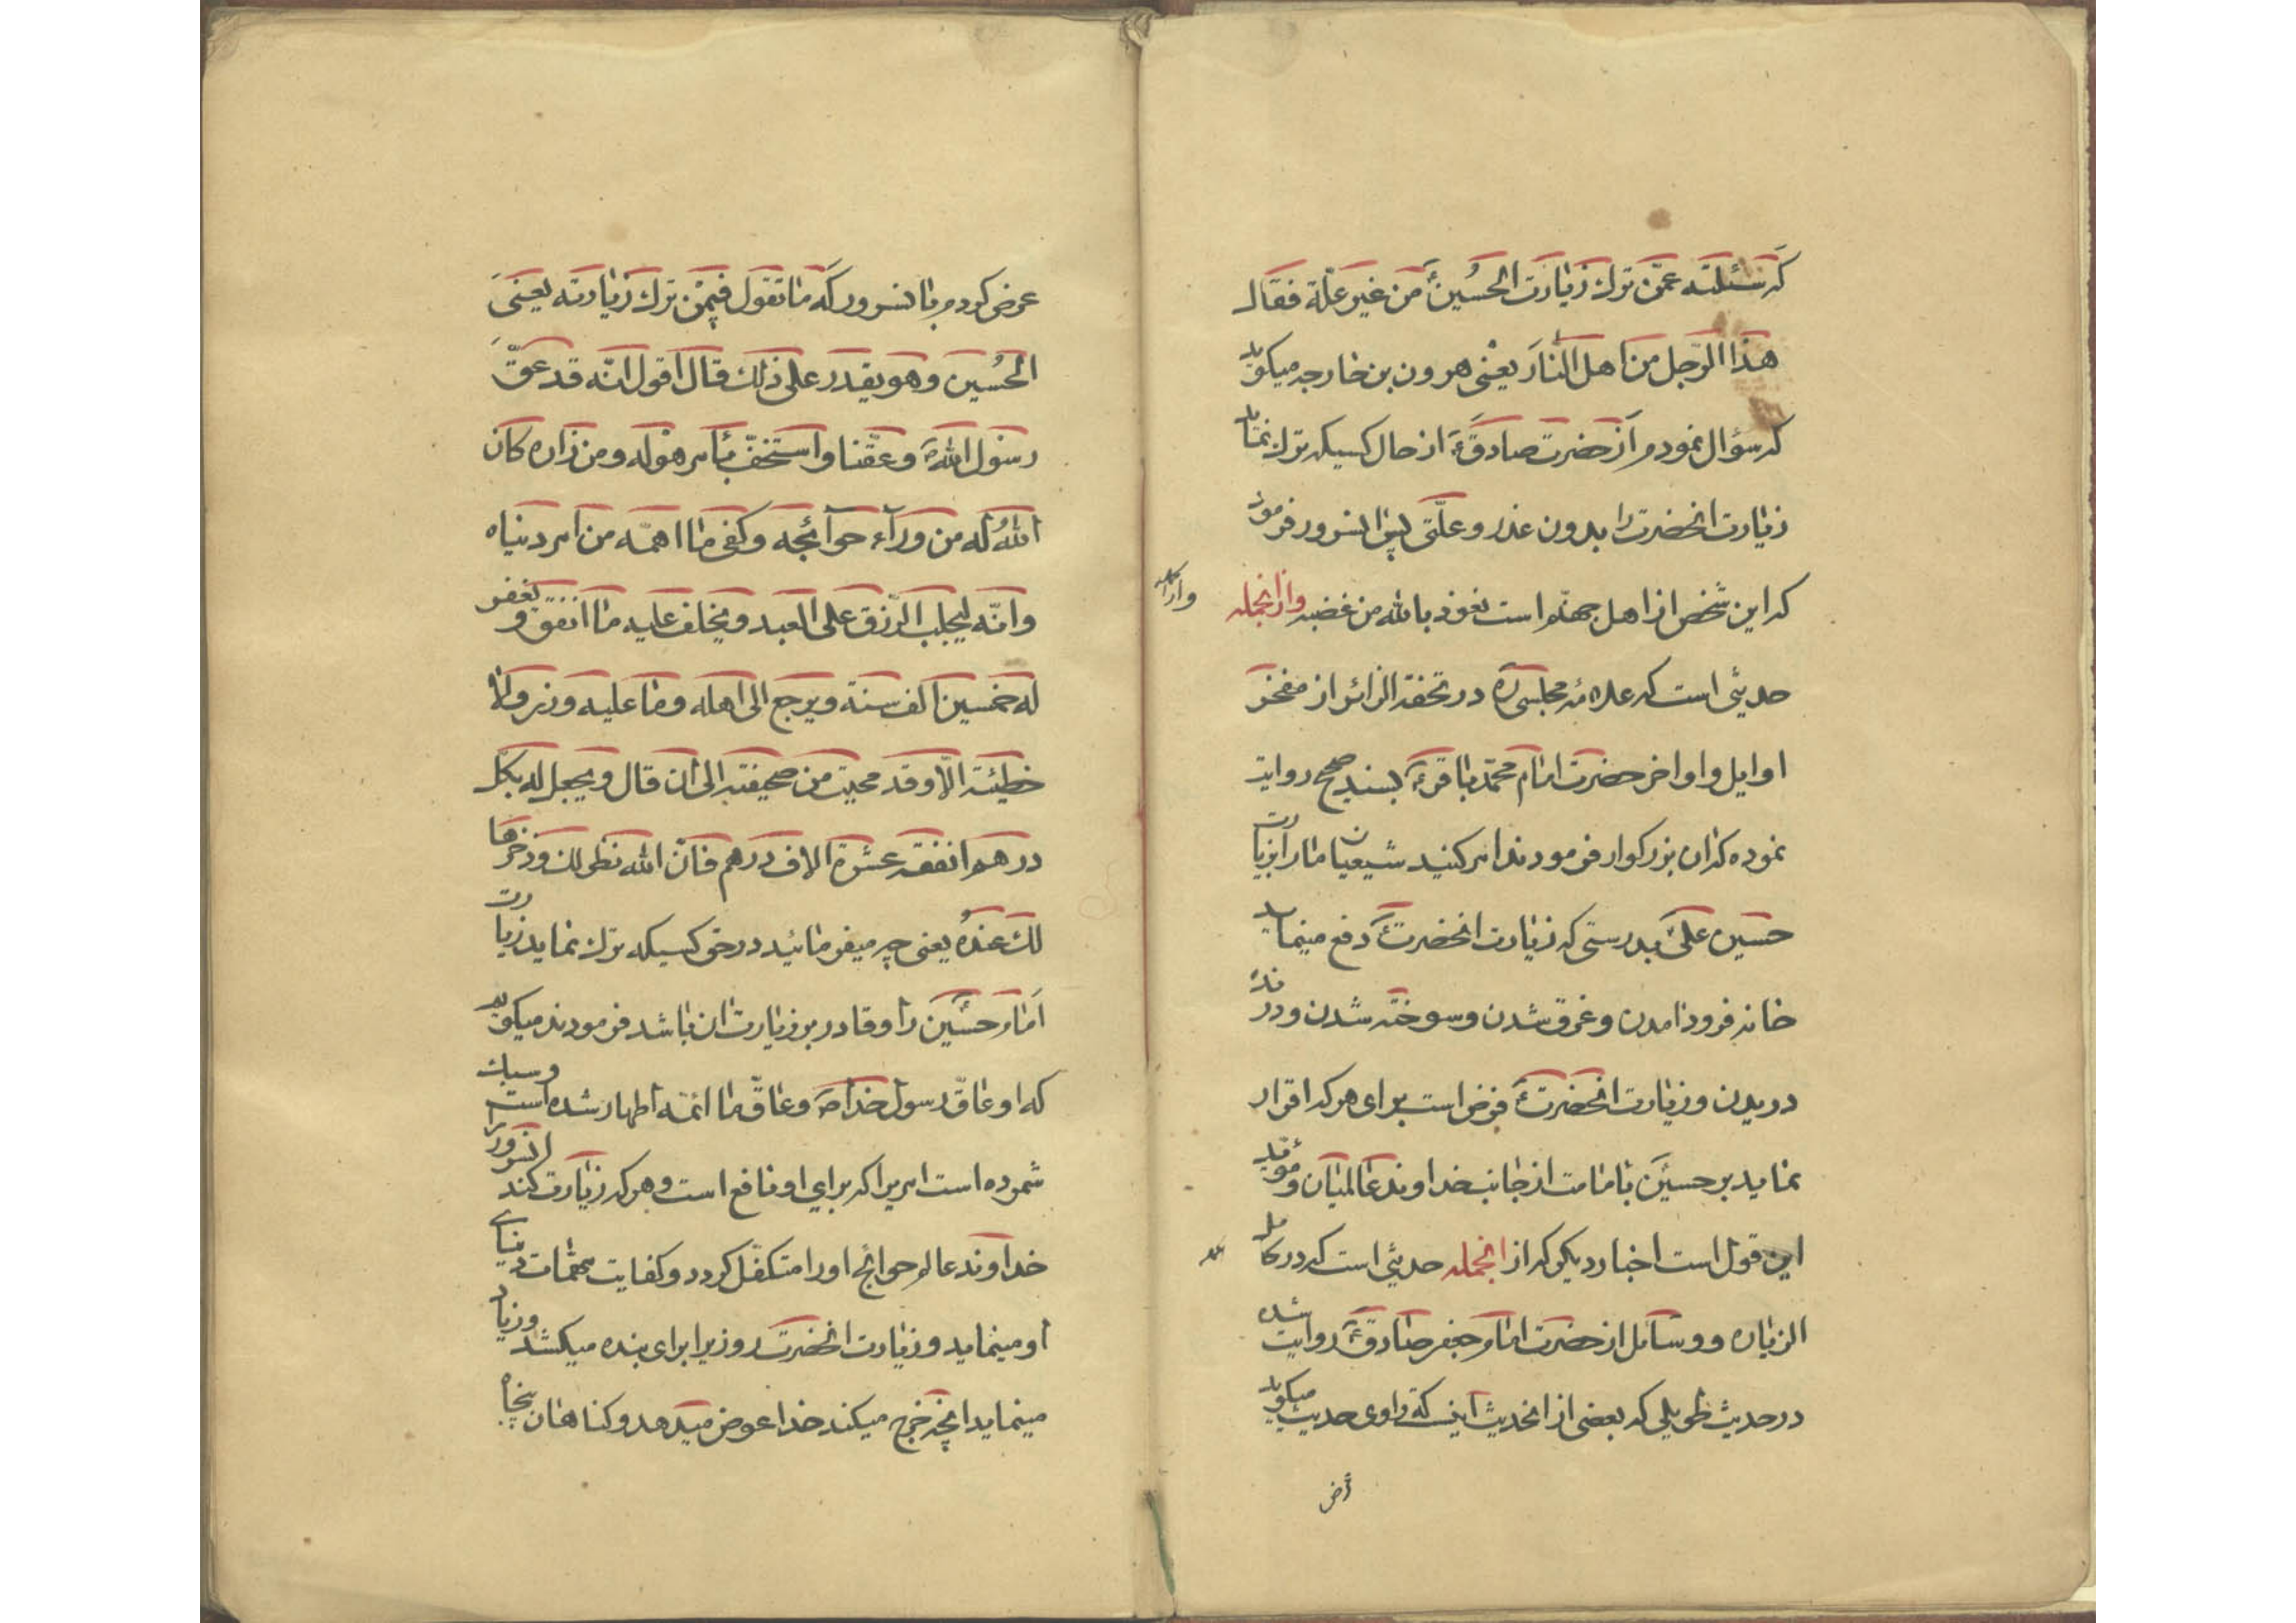 که سئلته عمّن ترك زیارت الحُسینؑ من غیر علّة فقال
هذا الرّجل من اهل النّار یعنی هرون بن خارجه میکوید
که سؤال نمودم از حضرت صادقؑ از حال کسیکه ترك نماید
زیارت انحضرت را بدون عذر و علّتی پس انسرور فرمود
که این شخص از اهل جهنّم است نعوذ بالله من غضبه وازانجمله
حدیثی است که علامهٔ مجلسیؒ در تحفة الزائر از مفخر
اوایل و اواخر حضرت امام محمّد باقرؑ بسند صحیح روایت
نموده که ان بزرکوار فرمودند امر کنید شیعیان ما را بزیارت
حسین علیؑ بدرستی که زیارت انحضرتؑ دفع مینماید
خانه فرود امدن و غرق شدن و سوخته شدن و درنده
دریدن و زیارت انحضرتؑ فرض است برای هر که اقرار
نماید بر حسینؑ بامامت از جانب خداوند عالمیان و مؤید
این قول است اخبار دیکر که از انجمله حدیثی است که در کامل
الزیاره و وسائل از حضرت امام جعفر صادقؑ روایت شده
در حدیث طویلی که بعضی از انحدیث اینست که راوی حدیث میکوید
عرض کردم باانسرور که ما تقول فیمن ترك زیارته یعنی
الحُسین و هو یقدر علی ذلك قال اقول انّه قد عقّ
رسول اللهؐ و عقّنا و استخفّ بأمر هو له و من زاره کان
اللهُ له من ورآء حوآئجه و کفی ما اهمّه من امر دنیاه
و انّه لیجلب الرّزق علی العبد و یخلف علیه ما انفق و یغفر
له خمسین الف سنة و یرجع الی اهله و ما علیه وزر و لا
خطیئة الّا و قد محیت من صحیفته الی ان قال و یجعل له بکلّ
درهم انفقه عشرة الاف درهم فانّ الله نظر لك و ذخرها
لك عندهُ یعنی چه میفرمائید در حق کسیکه ترك نماید زیارت
امام حسینؑ را و قادر بر زیارت ان باشد فرمودند میکویم
که او عاقّ رسول خداؐ و عاقّ ما ائمّه اطهار شده است و سبك
شمرده است امریرا که برای او نافع است و هر که زیارت کند انسرور را
خداوند عالم حوائج او را متکفّل کردد و کفایت مهمّات دنیای
او مینماید و زیارت انحضرت روزیرا برای بنده میکشد و زیاد
مینماید انچه خرج میکند خدا عوض میدهد و کناهان پنجاه